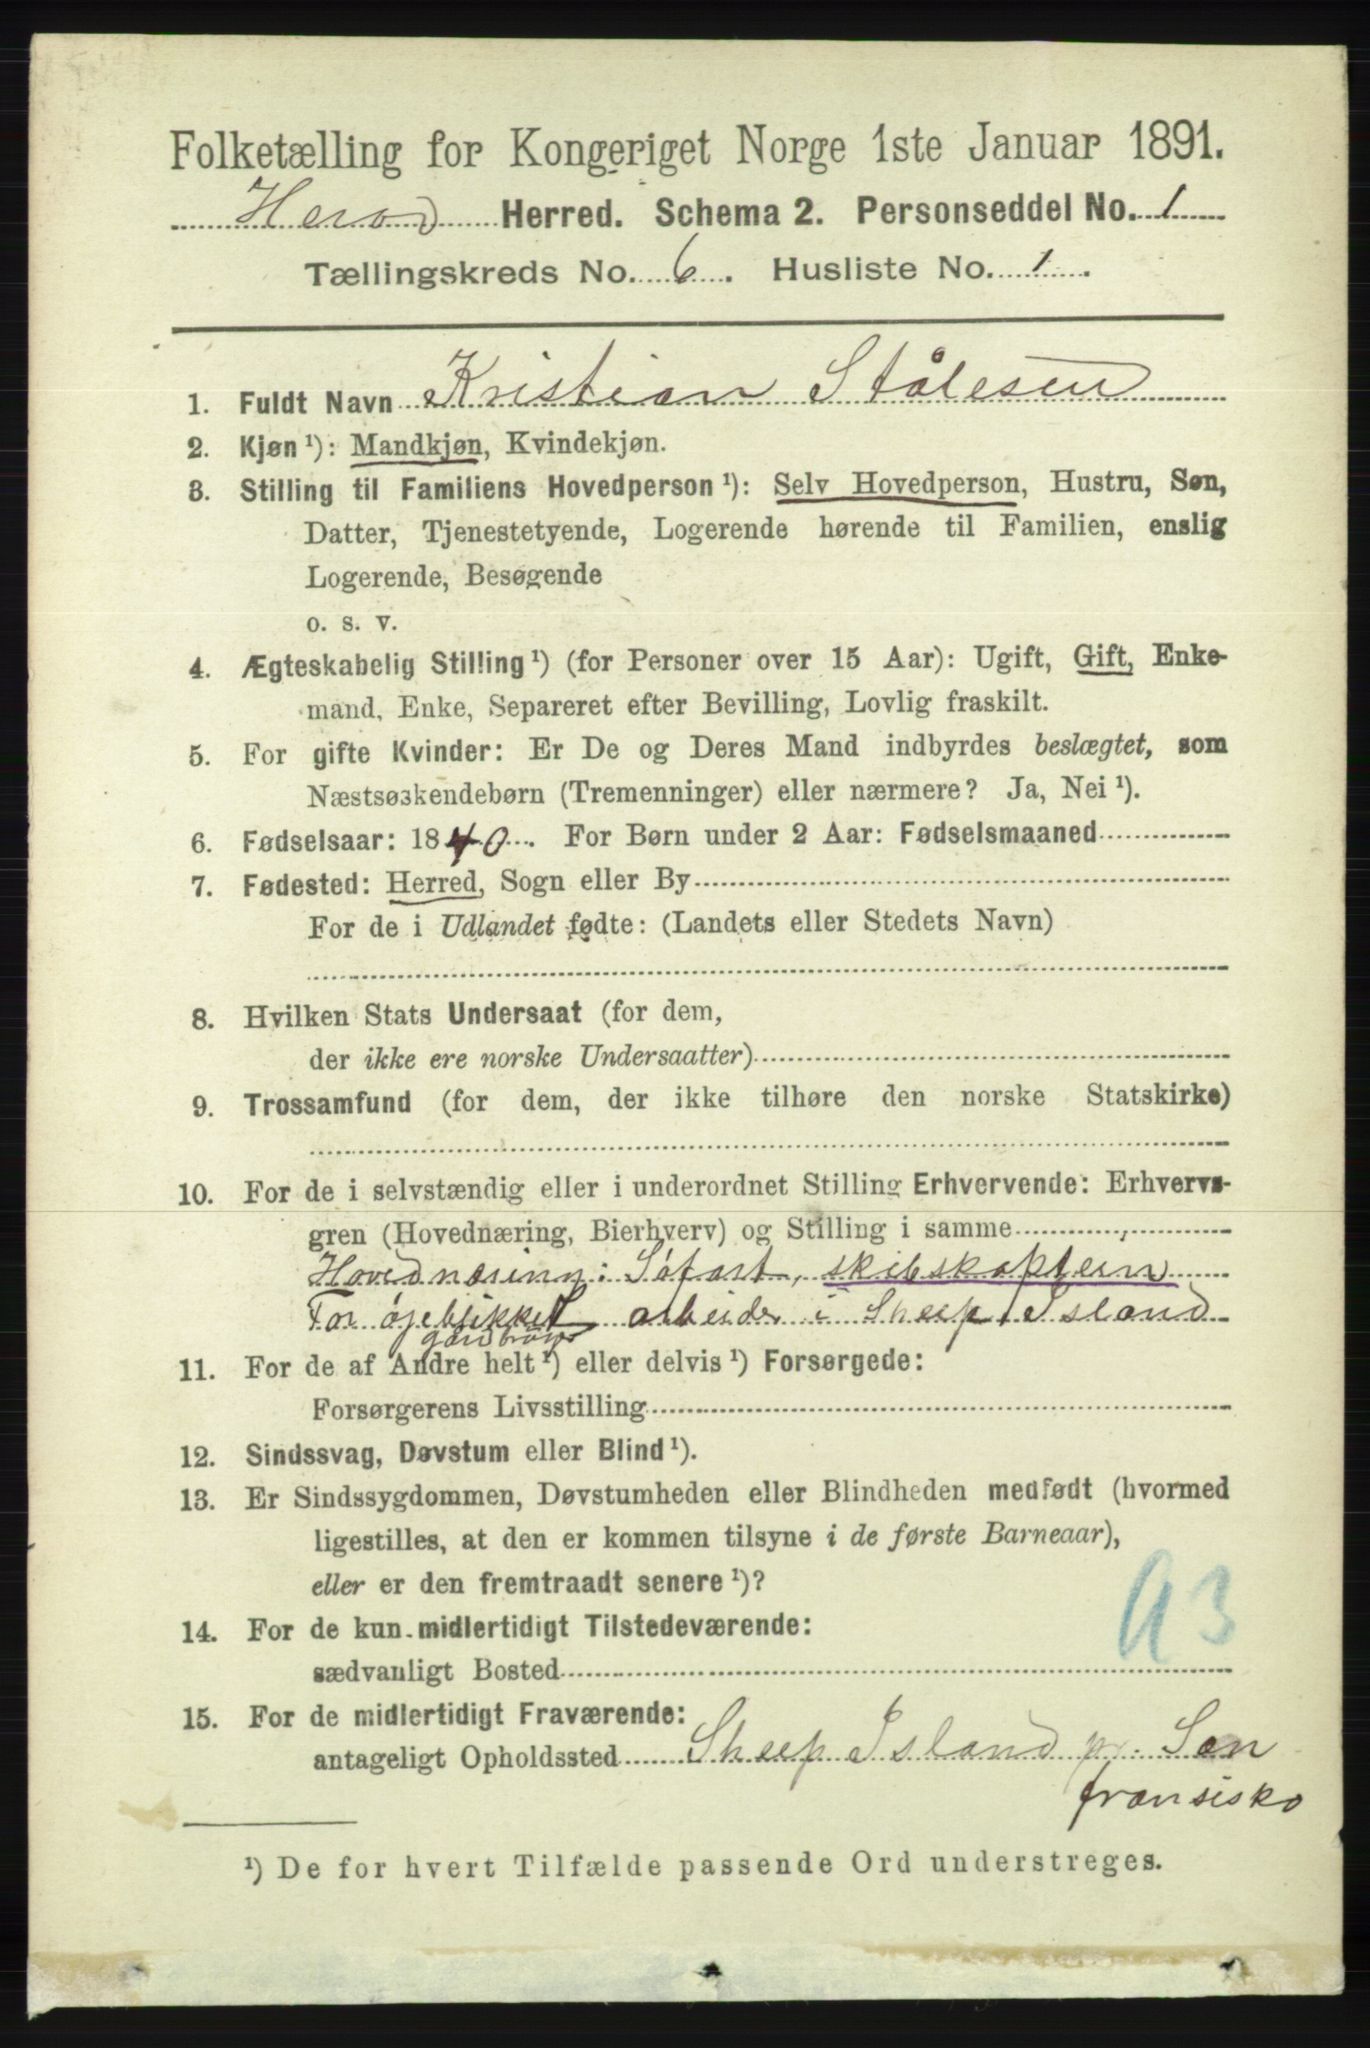 Folketælling for Kongeriget Norge 1ste Januar 1891.
Herod Herred. Schema 2. Personseddel No. 1
Tællingskreds No. 6. Husliste No. 1.
1. Fuldt Navn Kristian Stålesen
2. Kjøn ¹): Mandkjøn, Kvindekjøn.
3. Stilling til Familiens Hovedperson ¹): Selv Hovedperson, Hustru, Søn,
Datter, Tjenestetyende, Logerende hørende til Familien, enslig
Logerende, Besøgende
o. s. v.
4. Ægteskabelig Stilling ¹) (for Personer over 15 Aar): Ugift, Gift, Enke-
mand, Enke, Separeret efter Bevilling, Lovlig fraskilt.
5. For gifte Kvinder: Er De og Deres Mand indbyrdes beslægtet, som
Næstsøskendebørn (Tremenninger) eller nærmere? Ja, Nei ¹).
6. Fødselsaar: 1840. For Børn under 2 Aar: Fødselsmaaned
7. Fødested: Herred, Sogn eller By
For de i Udlandet fødte: (Landets eller Stedets Navn)
8. Hvilken Stats Undersaat (for dem,
der ikke ere norske Undersaatter)
9. Trossamfund (for dem, der ikke tilhøre den norske Statskirke)
10. For de i selvstændig eller i underordnet Stilling Erhvervende: Erhvervs-
gren (Hovednæring, Bierhverv) og Stilling i samme
Hovednæring: Søfart, skibskaptein
For øjeblikket arbeider i Sheep Island
11. For de af Andre helt ¹) eller delvis ¹) Forsørgede:
Forsørgerens Livsstilling
12. Sindssvag, Døvstum eller Blind ¹).
13. Er Sindssygdommen, Døvstumheden eller Blindheden medfødt (hvormed
ligestilles, at den er kommen tilsyne i de første Barneaar),
eller er den fremtraadt senere ¹)?
14. For de kun midlertidigt Tilstedeværende:
sædvanligt Bosted
15. For de midlertidigt Fraværende:
antageligt Opholdssted Sheep Island pr. San
fransisko
¹) De for hvert Tilfælde passende Ord understreges.